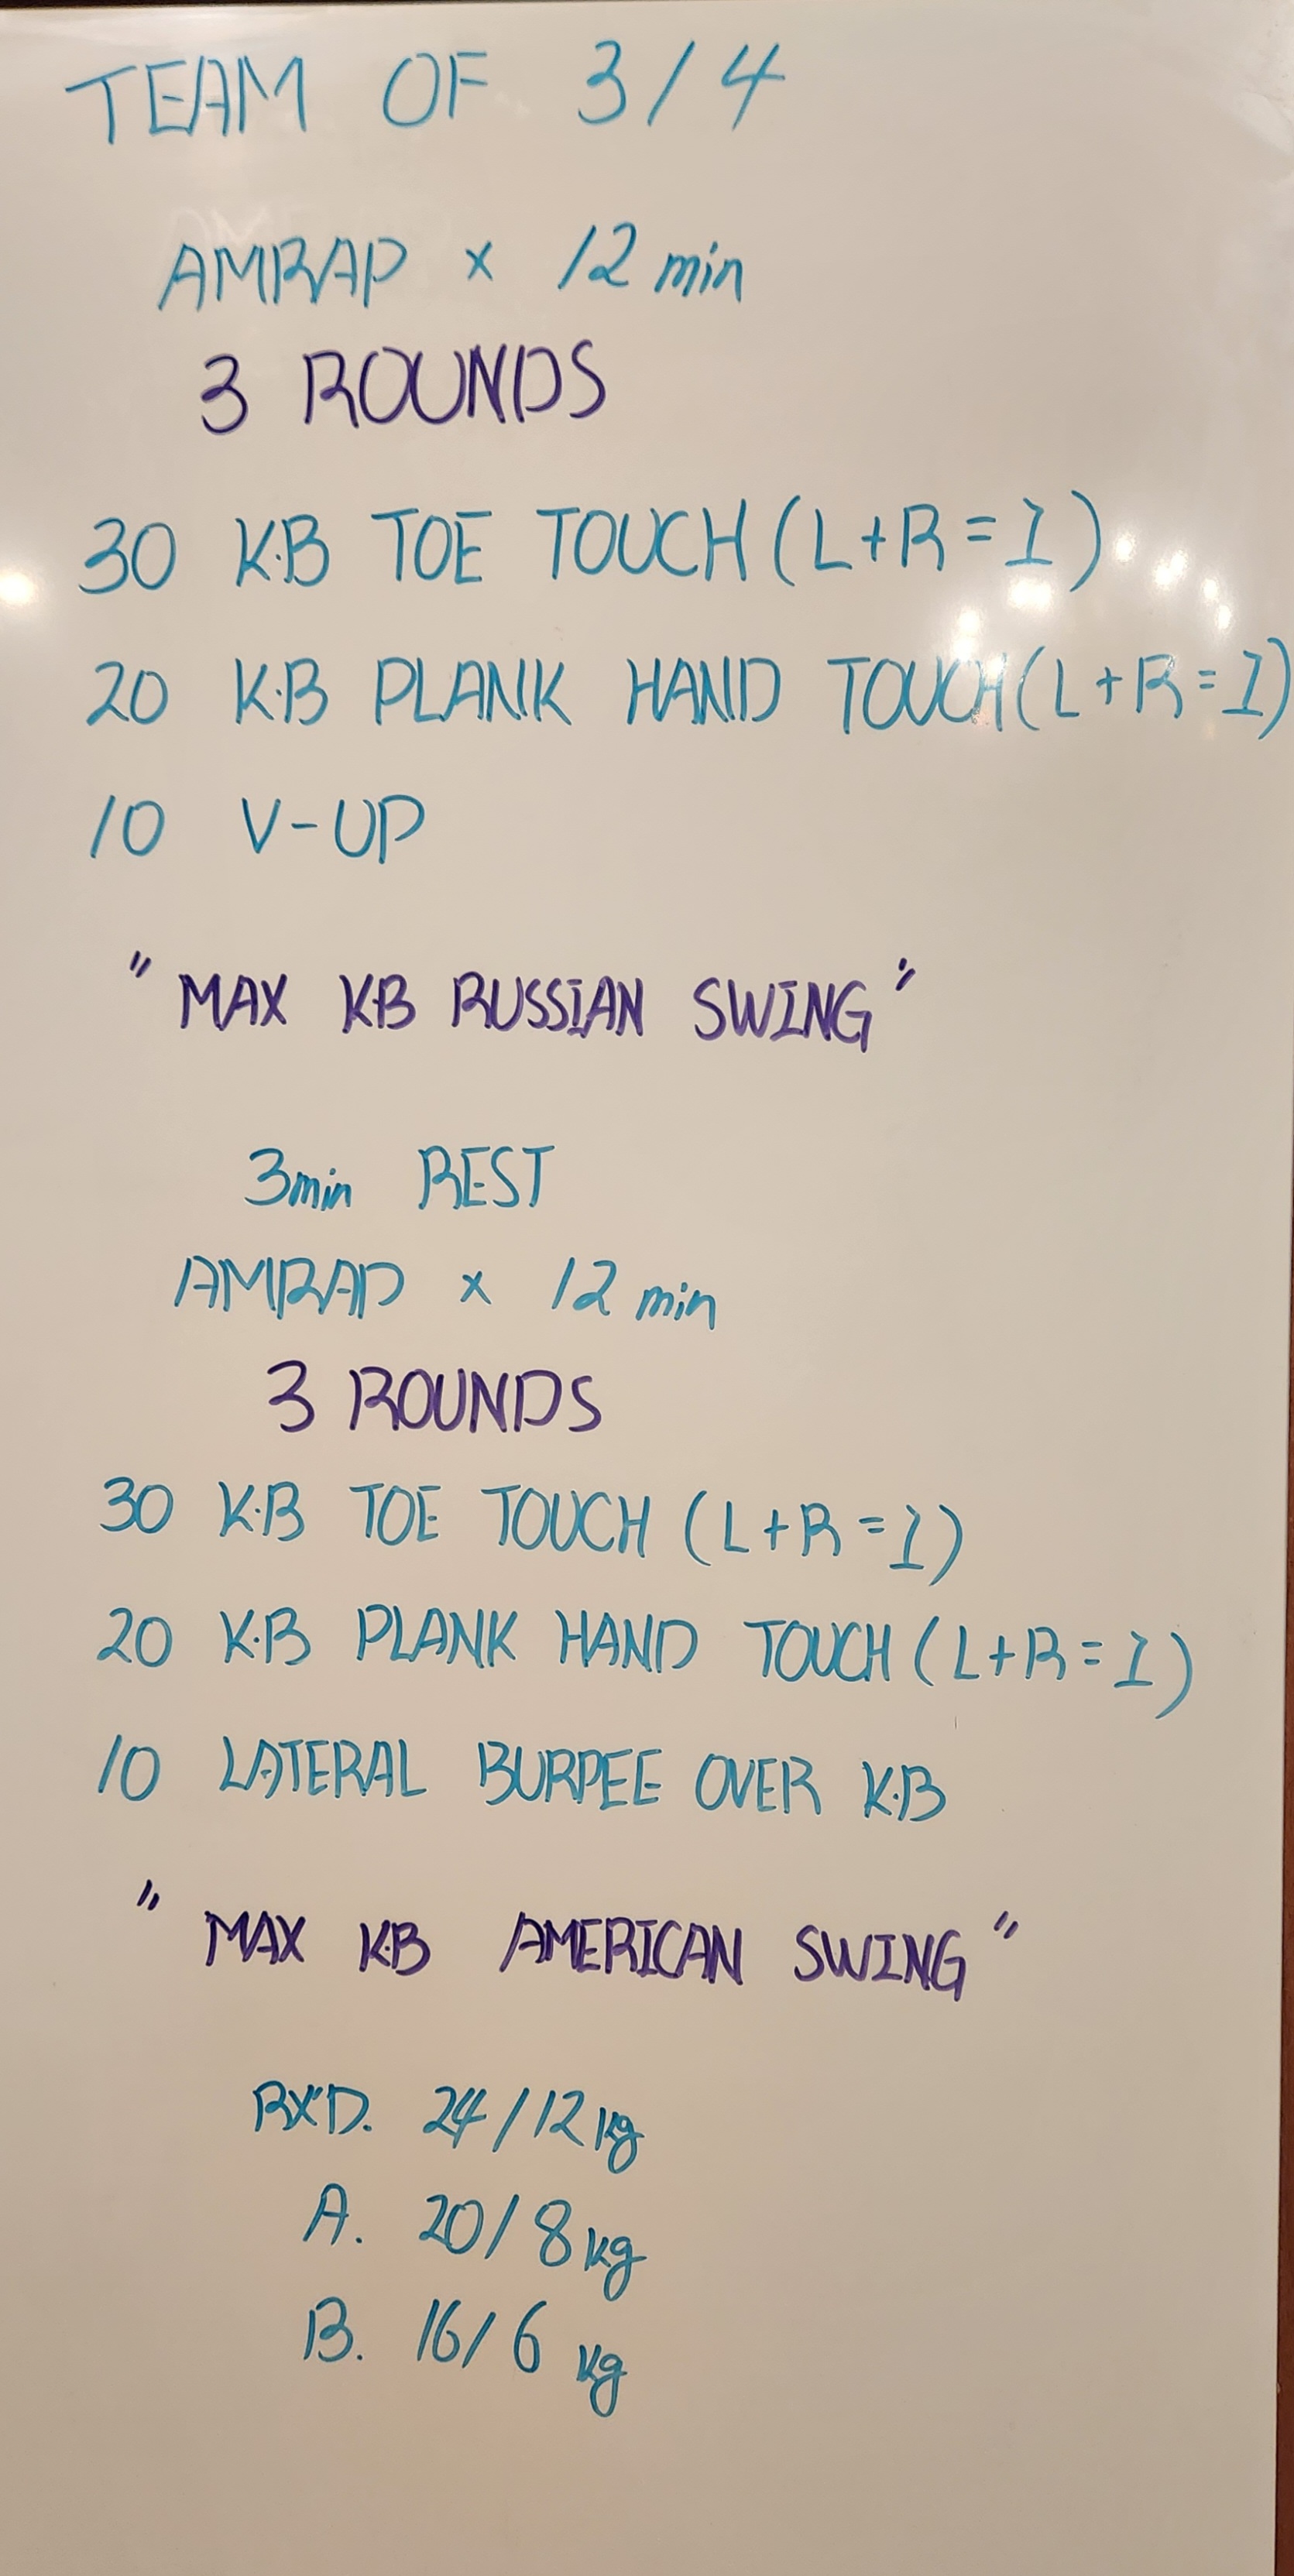 TEAM OF 3/4
AMRAP x 12 min
3 ROUNDS
30 K·B TOE TOUCH (L+R=1)
20 K·B PLANK HAND TOUCH (L+R=1)
10 V-UP
"MAX K·B RUSSIAN SWING"
3min REST
AMRAP x 12 min
3 ROUNDS
30 K·B TOE TOUCH (L+R=1)
20 K·B PLANK HAND TOUCH (L+R=1)
10 LATERAL BURPEE OVER K·B
"MAX K·B AMERICAN SWING"
RX'D. 24/12kg
A. 20/8kg
B. 16/6 kg